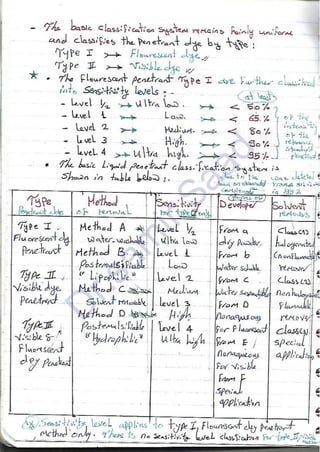 - The basic classification system remains Fairly uniform
and classifies the Penetrant dye by type:
Type I → Flourescent dye
Type II → Visible dye
* • The Flourescent penetrant Type I are Further classified
into Sensitivity levels: - (at least)
- level 1/2 → Ultra low. → < 50%
- level 1 → Low. → < 65% of the
- level 2 → Medium. → < 80%
- level 3 → High. → < 90%
- level 4 → Ultra high. → < 95%
• The basic Liquid penetrant classification system is
Shown in table below:
Type Method Sensitivity Developer Solvent
Penetrant of removal for type I only remover
Type I
Fluorescent dye
Penetrant
Type II
Visible dye
Penetrant
Type III
Visible &
Fluorescent
dye Penetrant
Method A
water washable
Method B
Postemulsifiable
"Lipophilic"
Method C
Solvent removable
Method D
Postemulsifiable
"Hydrophilic"
Level 1/2
Ultra low
Level 1
Low
Level 2
Medium
level 3
High
Level 4
Ultra high
From a
dry Powder
From b
water Soluble
From C
water suspendable
From D
Nonaqueous
For Fluorescent
From E
nonaqueous
For Visible
From F
special
application
Class (1)
halogenated
remover
Class (2)
nonhalogenated
remover
Class (3)
special
application
Sensitivity level applies to type I, Flourescent dye penetrant
method only. There is no sensitivity level classification for type II, Visible